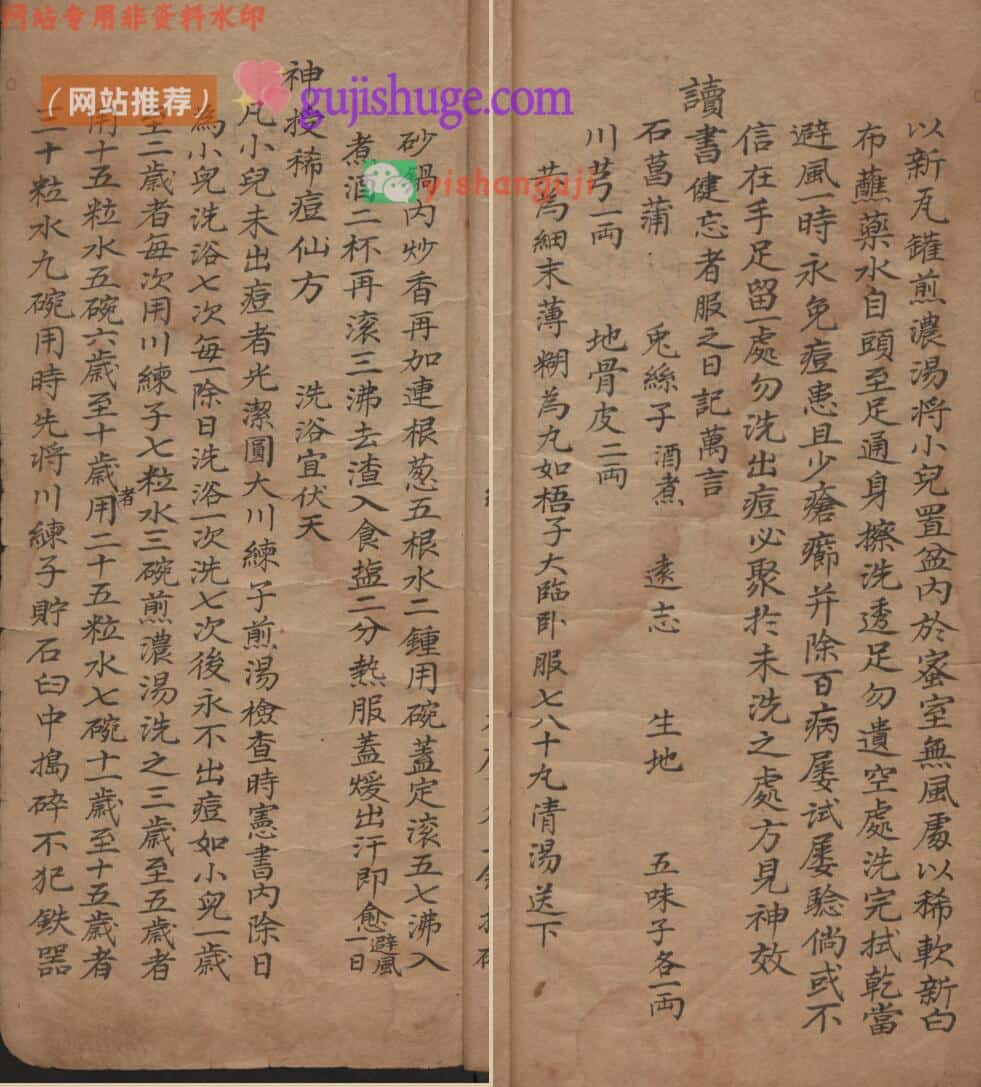 网站专用非资料水印
(网站推荐)
gujishuge.com
yishanguji
砂鍋內炒香再加連根葱五根水二鍾用碗蓋定滚五七沸入
煮酒二杯再滚三沸去渣入食塩二分熱服蓋煖出汗即愈避風一日
神授稀痘仙方 洗浴宜伏天
凡小兒未出痘者光潔圓大川練子煎湯檢查時憲書內除日
為小兒洗浴七次每一除日洗浴一次洗七次後永不出痘如小兒一歲
至二歲者每次用川練子七粒水三碗煎濃湯洗之三歲至五歲者
用十五粒水五碗六歲至十歲者用二十五粒水七碗十一歲至十五歲者
三十粒水九碗用時先將川練子貯石臼中搗碎不犯鉄器
以新瓦罐煎濃湯將小兒置盆內於密室無風處以稀軟新白
布蘸藥水自頭至足通身擦洗透足勿遺空處洗完拭乾當
避風一時永免痘患且少瘡癤并除百病屡試屡驗倘或不
信在手足留一處勿洗出痘必聚扵未洗之處方見神效
讀書健忘者服之日記萬言
石菖蒲 兎絲子酒煮 遠志 生地 五味子各一両
川芎一両 地骨皮二両
共為細末薄糊為丸如梧子大臨卧服七八十丸清湯送下